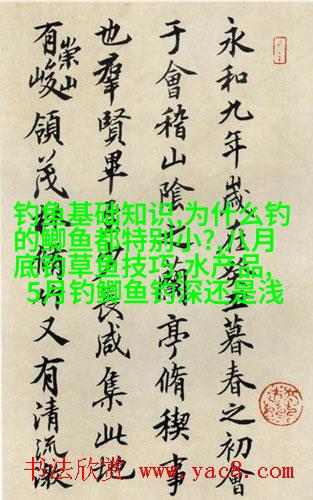 永和九年歲在癸丑暮春之初會
于會稽山陰之蘭亭脩稧事
也羣賢畢至少長咸集此地
有崇山峻領茂林脩竹又有清流激
钓鱼基础知识,为什么钓
的鲫鱼都特别小?,八月
底钓草鱼技巧,水产品,
5月钓鲫鱼钓深还是浅
书法欣赏 www.yac8.com